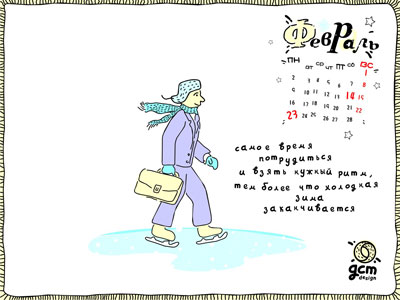 Февраль
ПН ВТ СР ЧТ ПТ СБ ВС
1
2 3 4 5 6 7 8
9 10 11 12 13 14 15
16 17 18 19 20 21 22
23 24 25 26 27 28
самое время
потрудиться
и взять нужный ритм,
тем более что холодная
зима
заканчивается
gcm
design